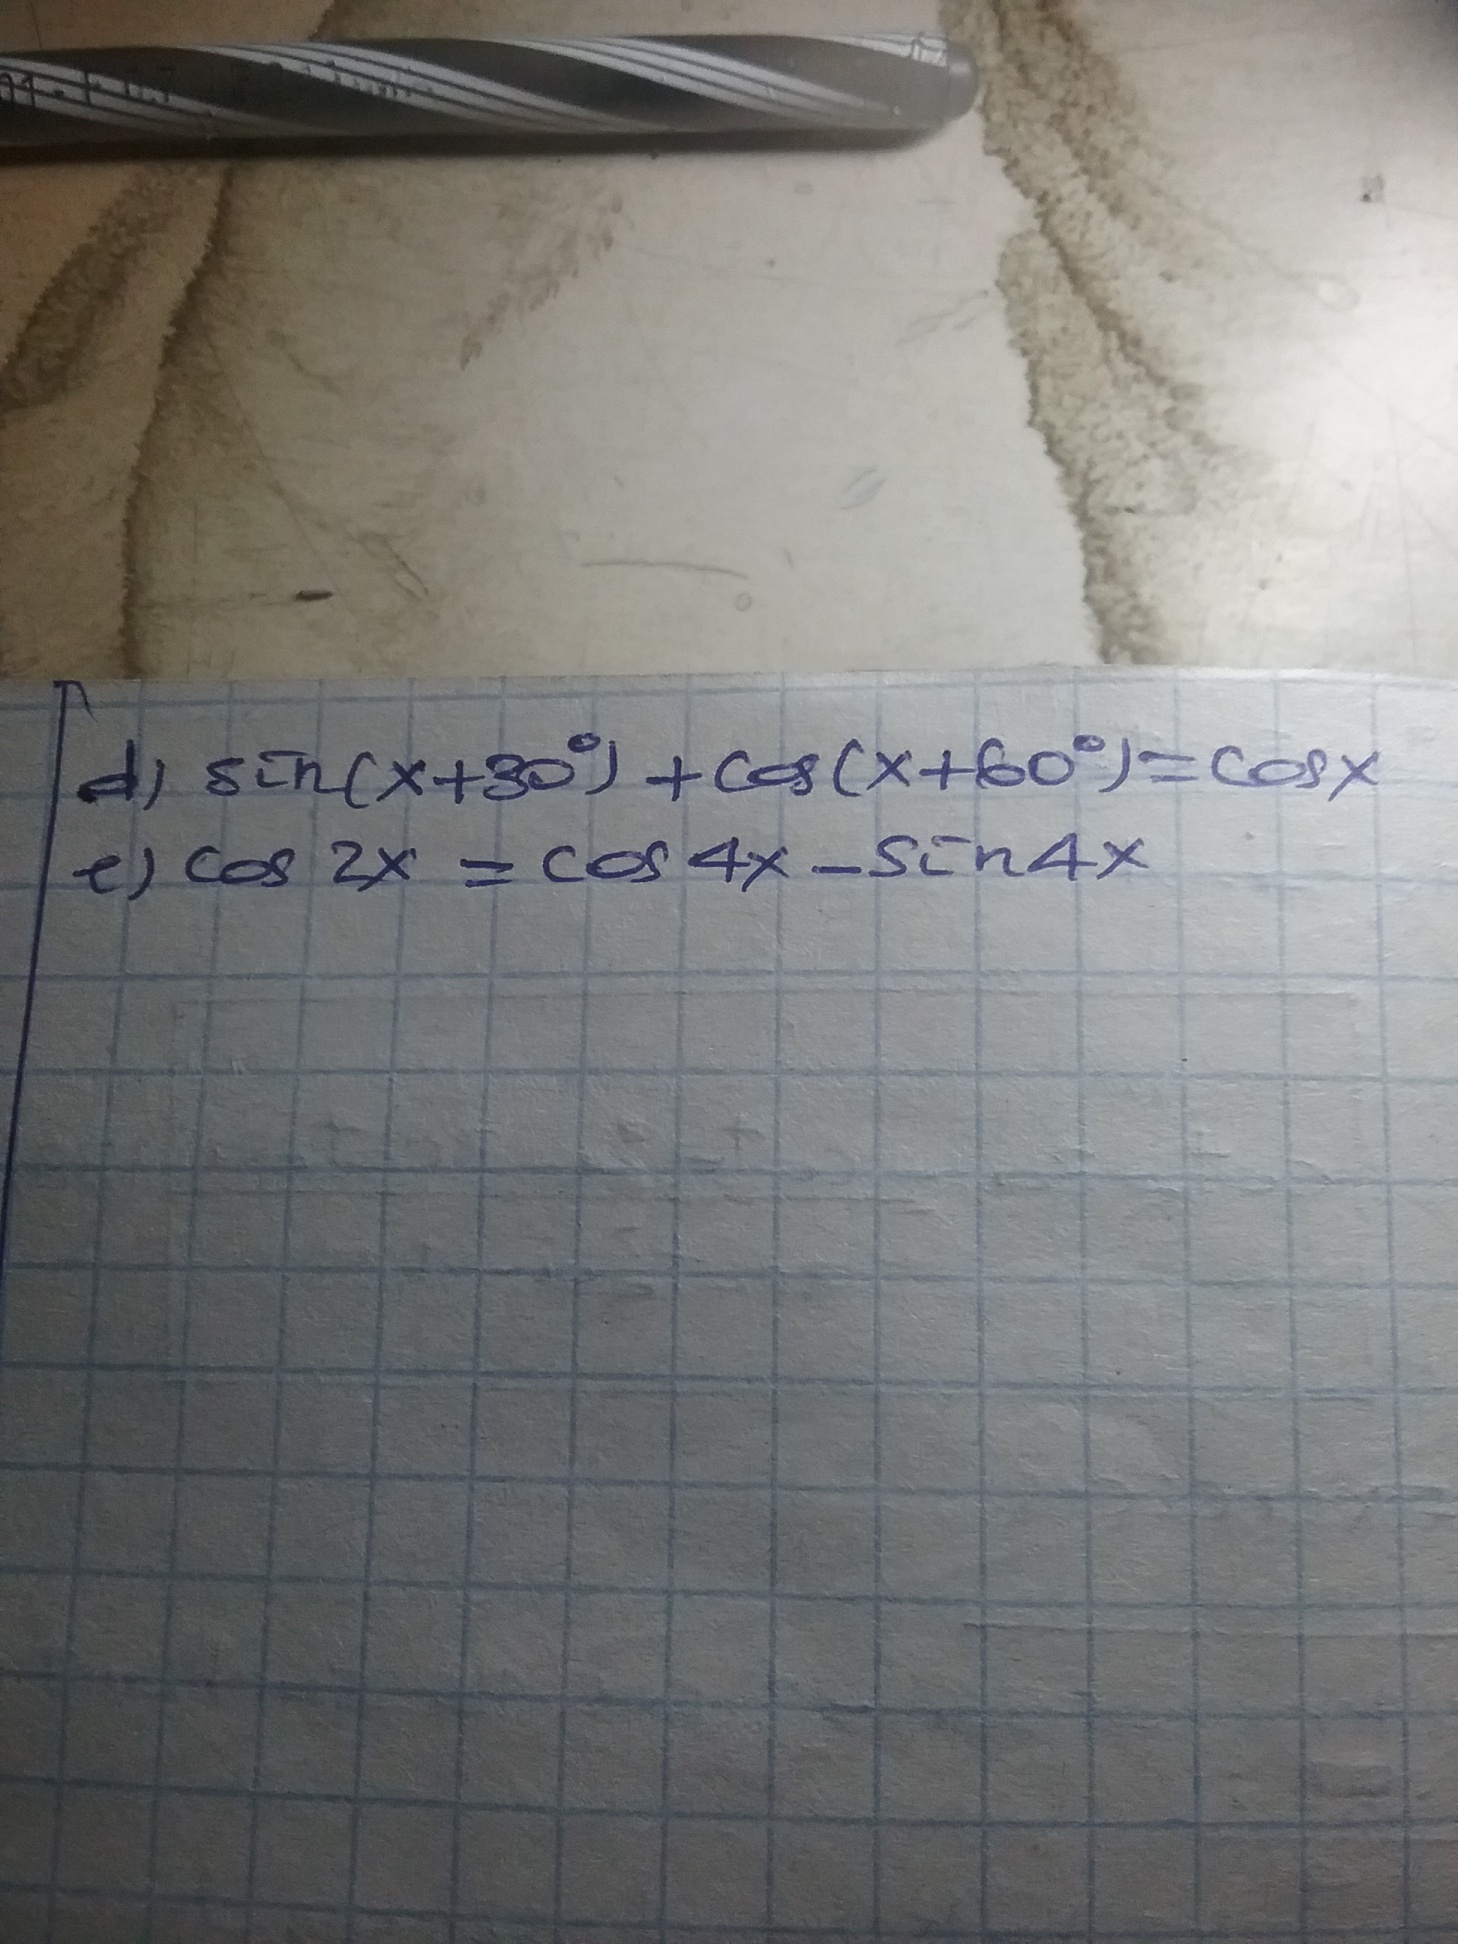 d) sin(x+30°)+cos(x+60°)=cosx
e) cos 2x = cos 4x - sin4x